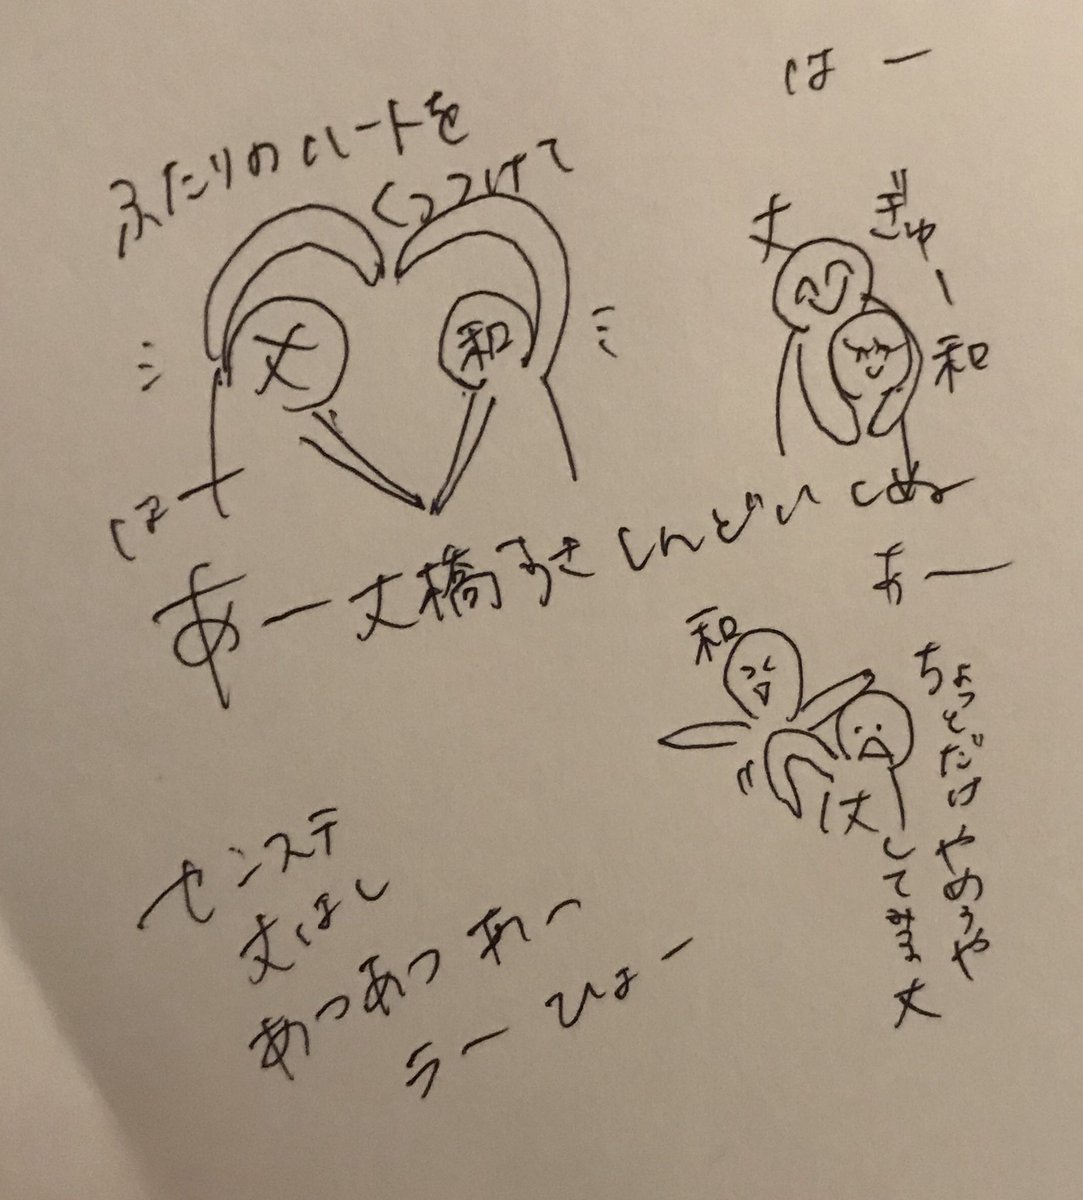 ふたりのハートを
くっつけて
丈
和
はー
はー
丈
ぎゅー
和
あー丈橋すきしんどいしぬ
あー
和
丈
ちょっとだけやめろや
してみる丈
センステ
丈はし
あつあつあー
うーひょー